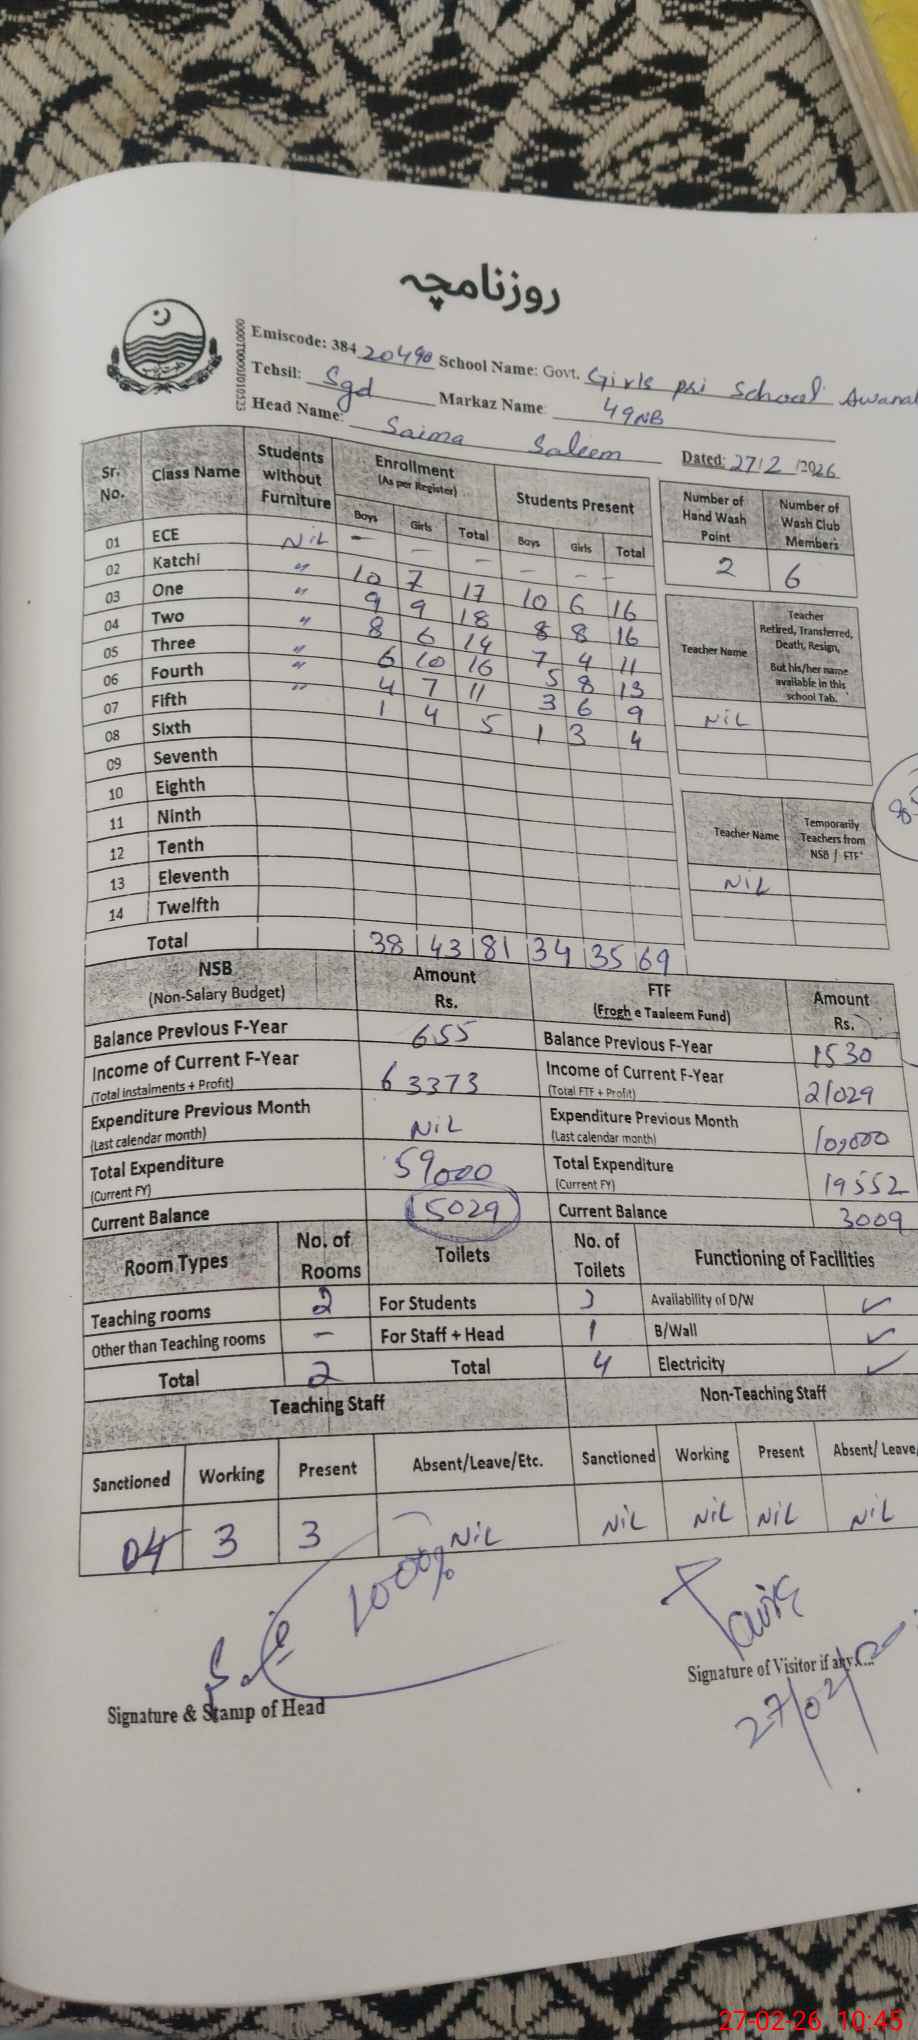 روزنامچہ
Emiscode: 384 20490 School Name: Govt. Girls pri School Awanat
Tehsil: Sgd Markaz Name: 49NB
Head Name: Saima Saleem Dated: 27/2/2026
Sr. No. Class Name Students without Furniture Enrollment (As per Register) Students Present
Boys Girls Total Boys Girls Total
01 ECE NiL - - - - - -
02 Katchi " 10 7 17 10 6 16
03 One " 9 9 18 8 8 16
04 Two " 8 6 14 7 4 11
05 Three " 6 10 16 5 8 13
06 Fourth " 4 7 11 3 6 9
07 Fifth " 1 4 5 1 3 4
08 Sixth
09 Seventh
10 Eighth
11 Ninth
12 Tenth
13 Eleventh
14 Twelfth
Total 38 43 81 34 35 69
Number of Hand Wash Point Number of Wash Club Members
2 6
Teacher Name Teacher Retired, Transferred, Death, Resign, But his/her name available in this school Tab.
NiL
Teacher Name Temporarily Teachers from NSB / FTF
NiL
NSB (Non-Salary Budget) Amount Rs. FTF (Frogh e Taaleem Fund) Amount Rs.
Balance Previous F-Year 655 Balance Previous F-Year 1530
Income of Current F-Year (Total instalments + Profit) 63373 Income of Current F-Year (Total FTF + Profit) 21029
Expenditure Previous Month (Last calendar month) NiL Expenditure Previous Month (Last calendar month) 10,000
Total Expenditure (Current FY) 59000 Total Expenditure (Current FY) 19552
Current Balance 5029 Current Balance 3009
Room Types No. of Rooms Toilets No. of Toilets Functioning of Facilities
Teaching rooms 2 For Students 3 Availability of D/W ✓
Other than Teaching rooms - For Staff + Head 1 B/Wall ✓
Total 2 Total 4 Electricity ✓
Teaching Staff Non-Teaching Staff
Sanctioned Working Present Absent/Leave/Etc. Sanctioned Working Present Absent/ Leave/
04 3 3 NiL NiL NiL NiL NiL
100%
Signature & Stamp of Head Signature of Visitor if any....
27/02/20
27-02-26 10:45